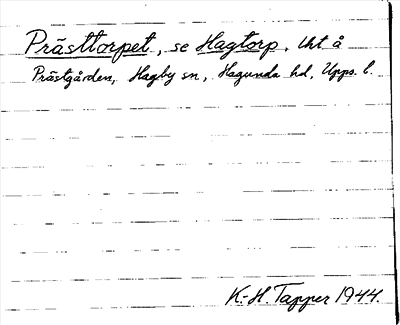 Prästtorpet, se Hagtorp, lht å
Prästgården, Hagby sn, Hagunda hd, Upps. l.
K.-H. Tapper 1944.